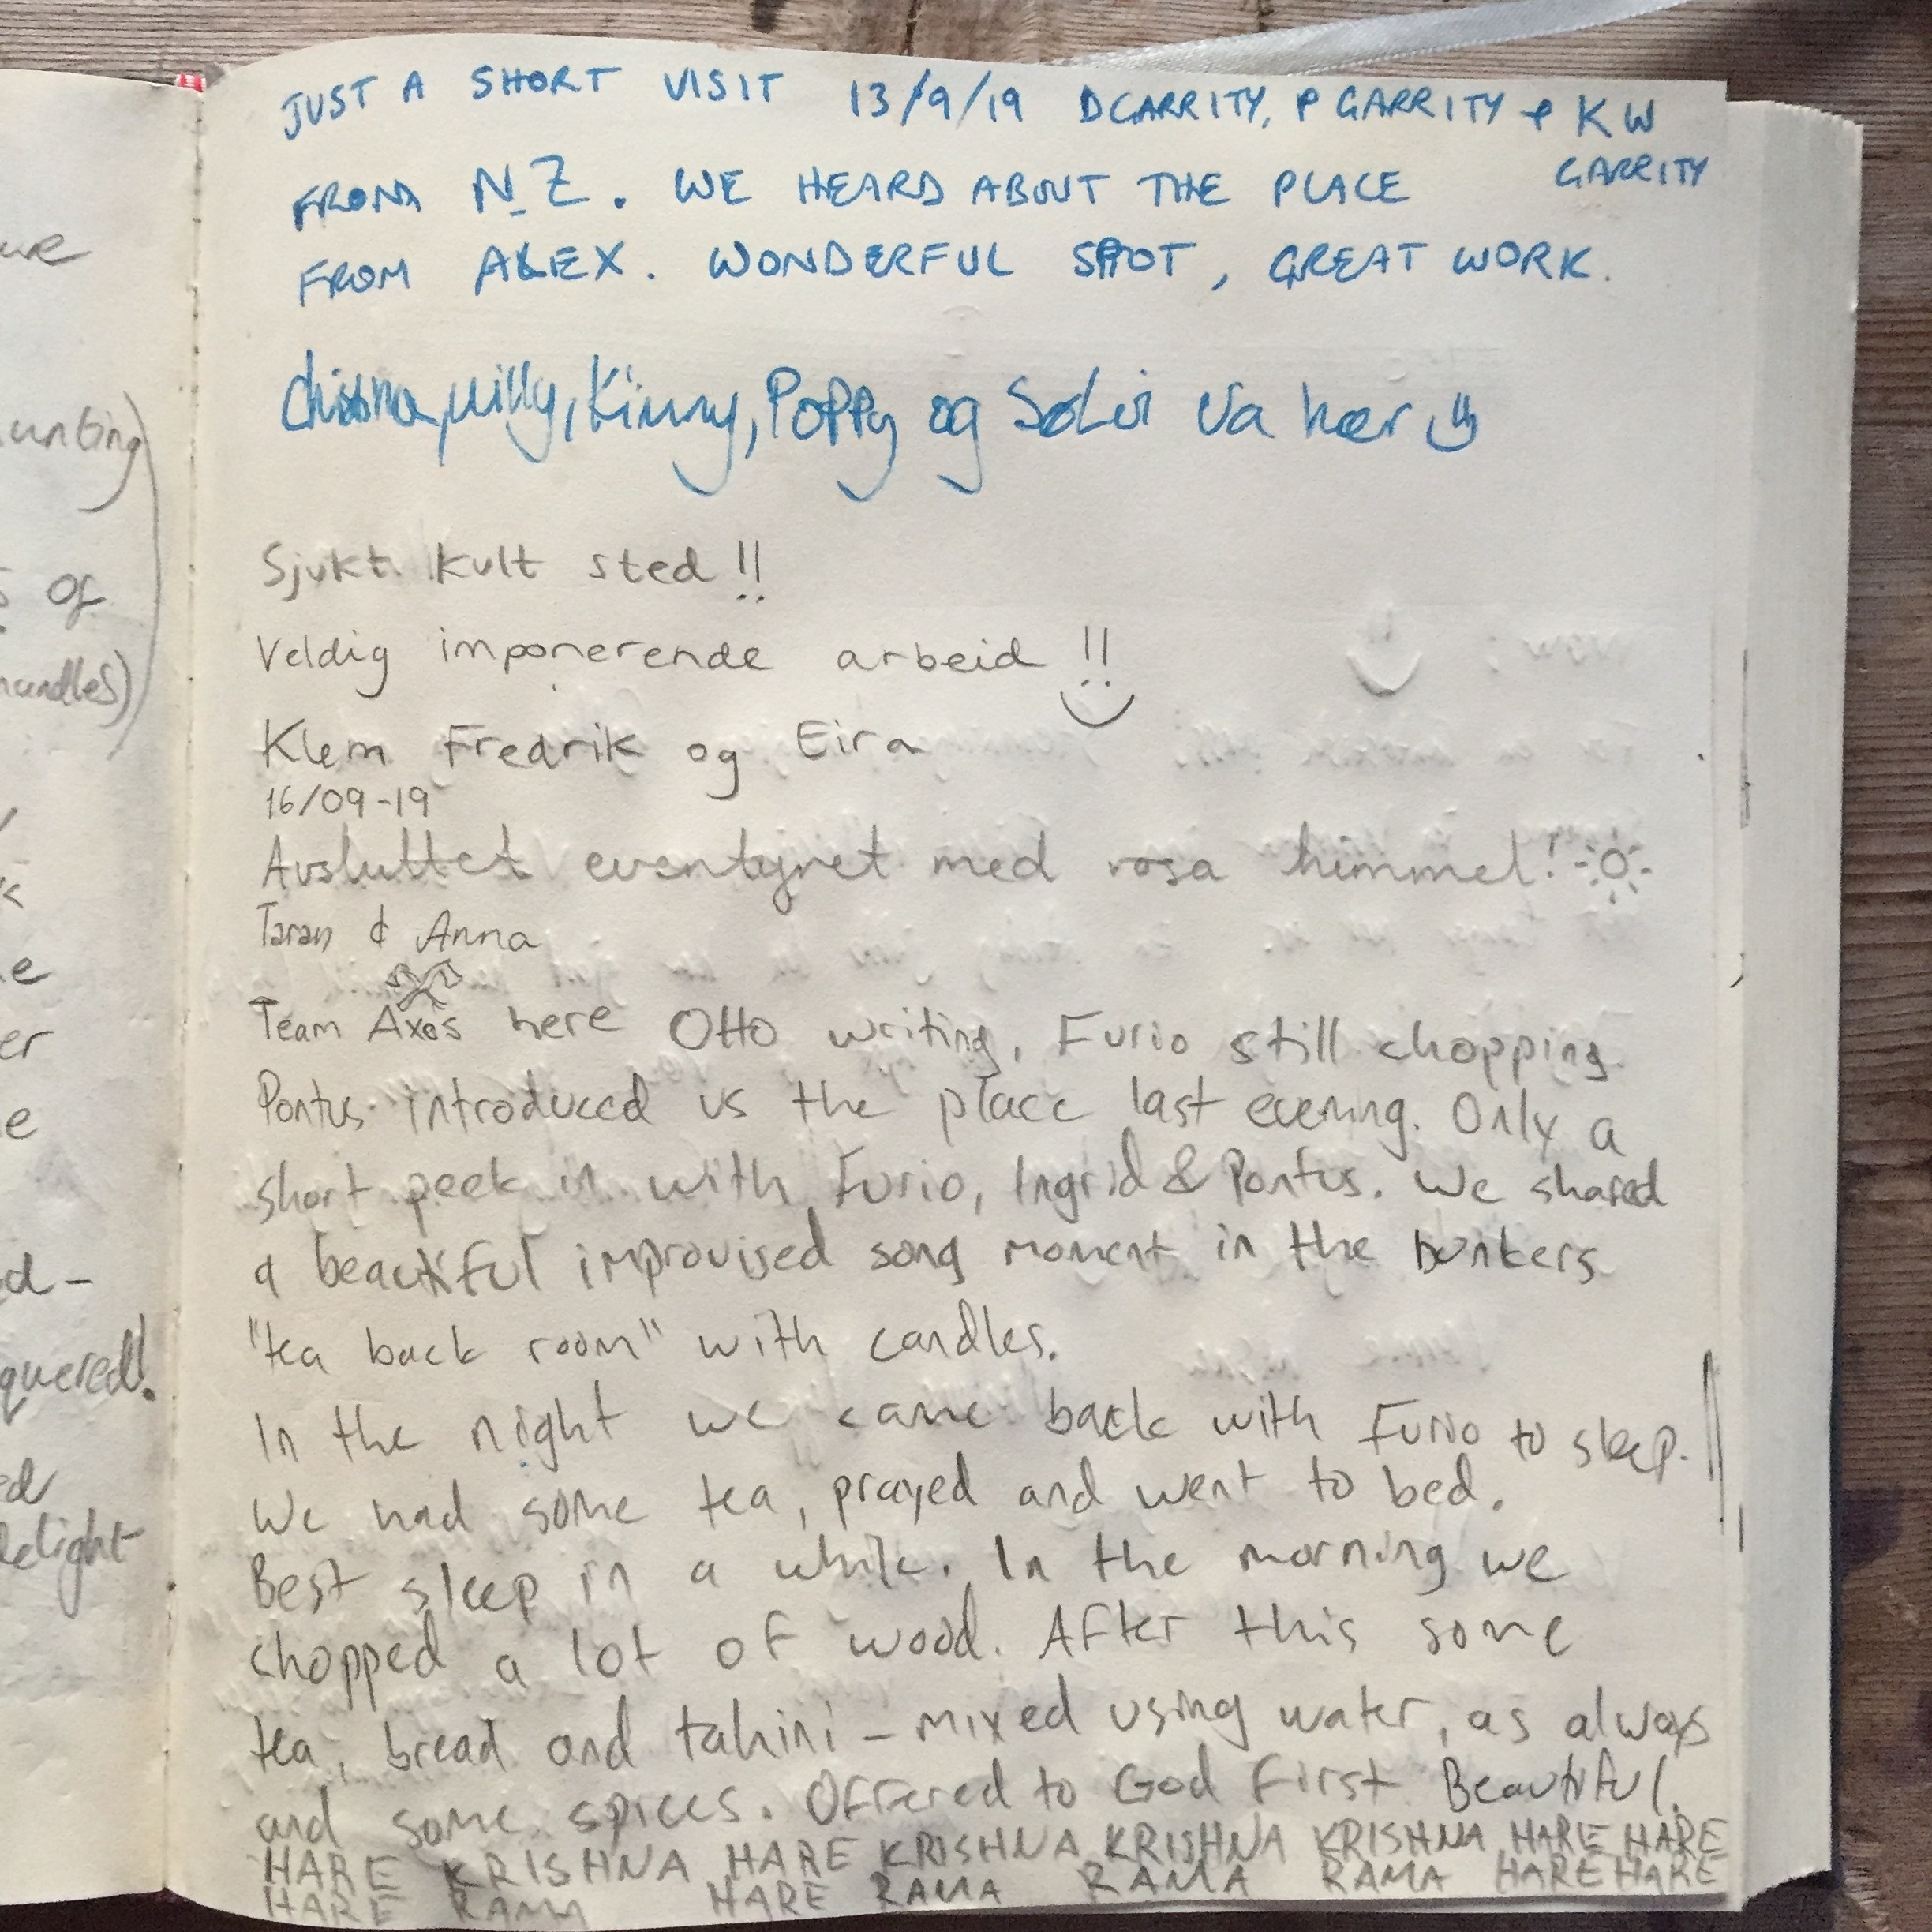 we
unting)
s of
handles)
e
er
e
d-
quered!
ed
delight
JUST A SHORT VISIT 13/9/19 D GARRITY, P GARRITY & KW
GARRITY
FROM N.Z. WE HEARD ABOUT THE PLACE
FROM ALEX. WONDERFUL SPOT, GREAT WORK.
Kinny, Poppy og Solvi va hær
Sjukt kult sted!!
Veldig imponerende arbeid!!
Klem Fredrik og Eira
16/09-19
Avsluttet eventyret med rosa himmel!
Taran & Anna
Team Axes here Otto writing, Furio still chopping
Pontus introduced us the place last evening. Only a
short peek in with Furio, Ingrid & Pontus. We shared
a beautiful improvised song moment in the bunkers
"tea back room" with candles.
In the night we came back with Furio to sleep.
We had some tea, prayed and went to bed.
Best sleep in a while. In the morning we
chopped a lot of wood. After this some
tea, bread and tahini - mixed using water, as always
and some spices. Offered to God first Beautiful.
HARE KRISHNA HARE KRISHNA KRISHNA KRISHNA HARE HARE
HARE RAMA HARE RAMA RAMA RAMA HARE HARE